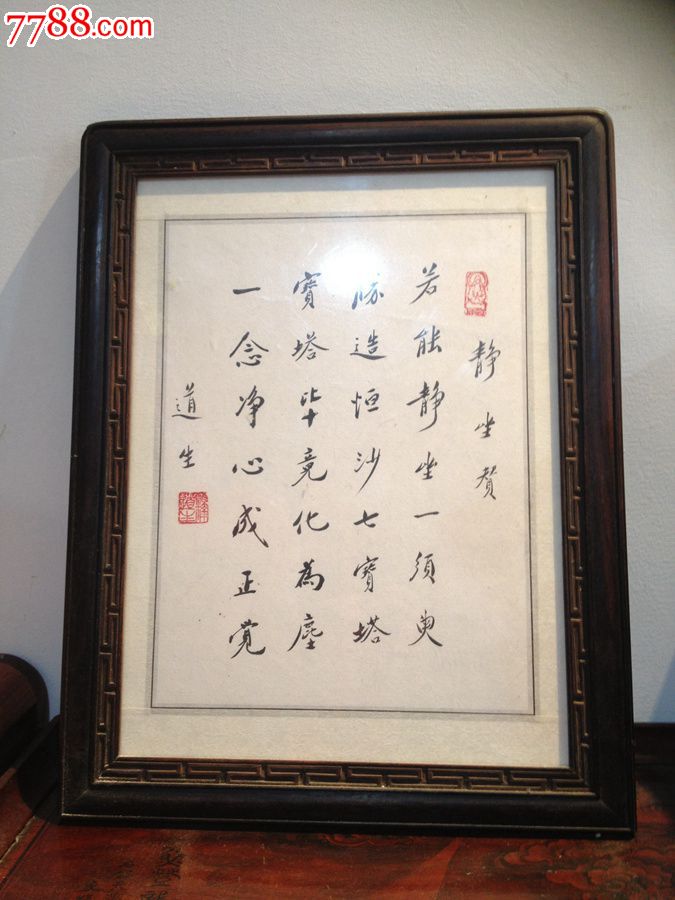 7788.com
静坐赞
若能静坐一须臾
胜造恒沙七寳塔
寳塔毕竟化為塵
一念净心成正觉
道生